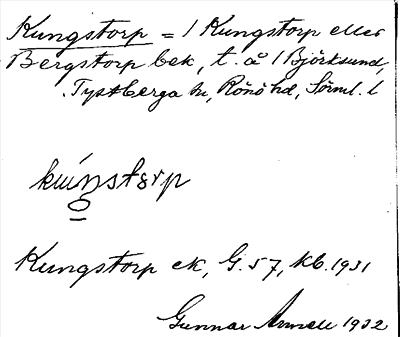 Kungstorp = 1 Kungstorp eller
Bergstorp bek, t. å 1 Björksund,
Tystberga sn, Rönö hd, Sörml. l
kuŋstɔrp
Kungstorp ek, G. 57, kb. 1931
Gunnar 1932